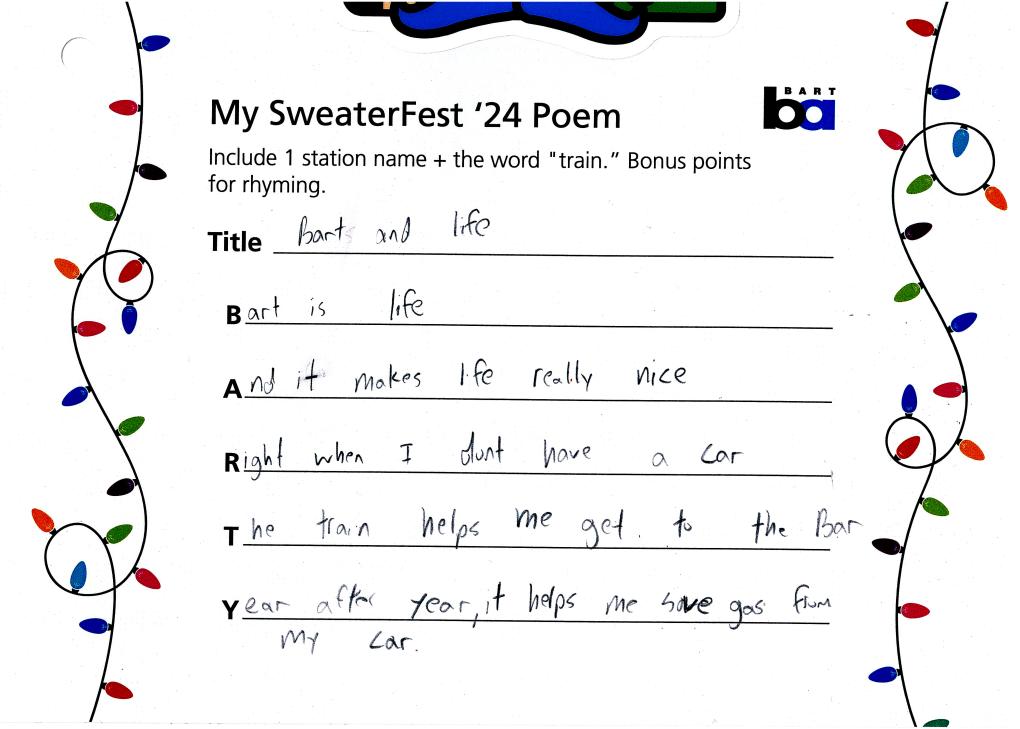 BART
ba
My SweaterFest '24 Poem
Include 1 station name + the word "train." Bonus points
for rhyming.
Title Barts and life
Bart is life
And it makes life really nice
Right when I dont have a car
The train helps me get to the Bar
Year after year, it helps me save gas from
my car.